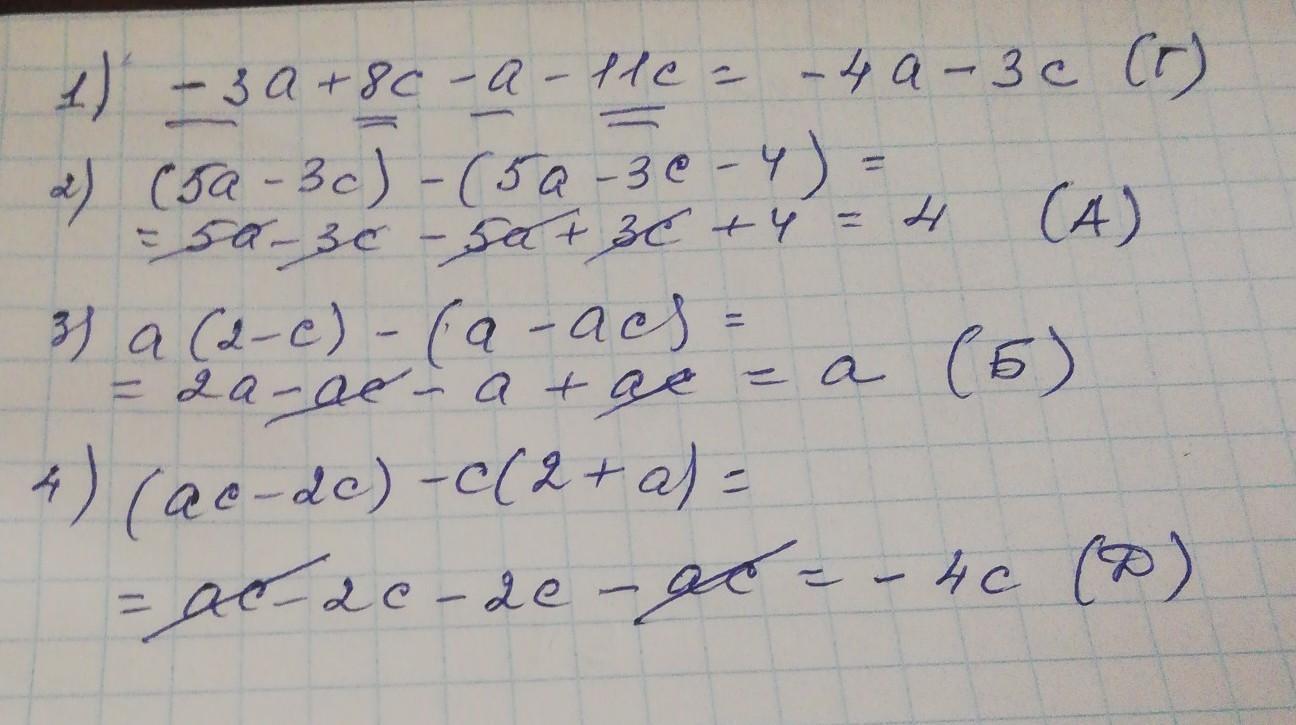 1) -3a+8c-a-11c= -4a-3c (Г)
2) (5a-3c)-(5a-3c-4)=
=5a-3c-5a+3c+4=4 (А)
3) a(2-c)-(a-ac)=
=2a-ac-a+ac=a (Б)
4) (ac-2c)-c(2+a)=
=ac-2c-2c-ac=-4c (Д)